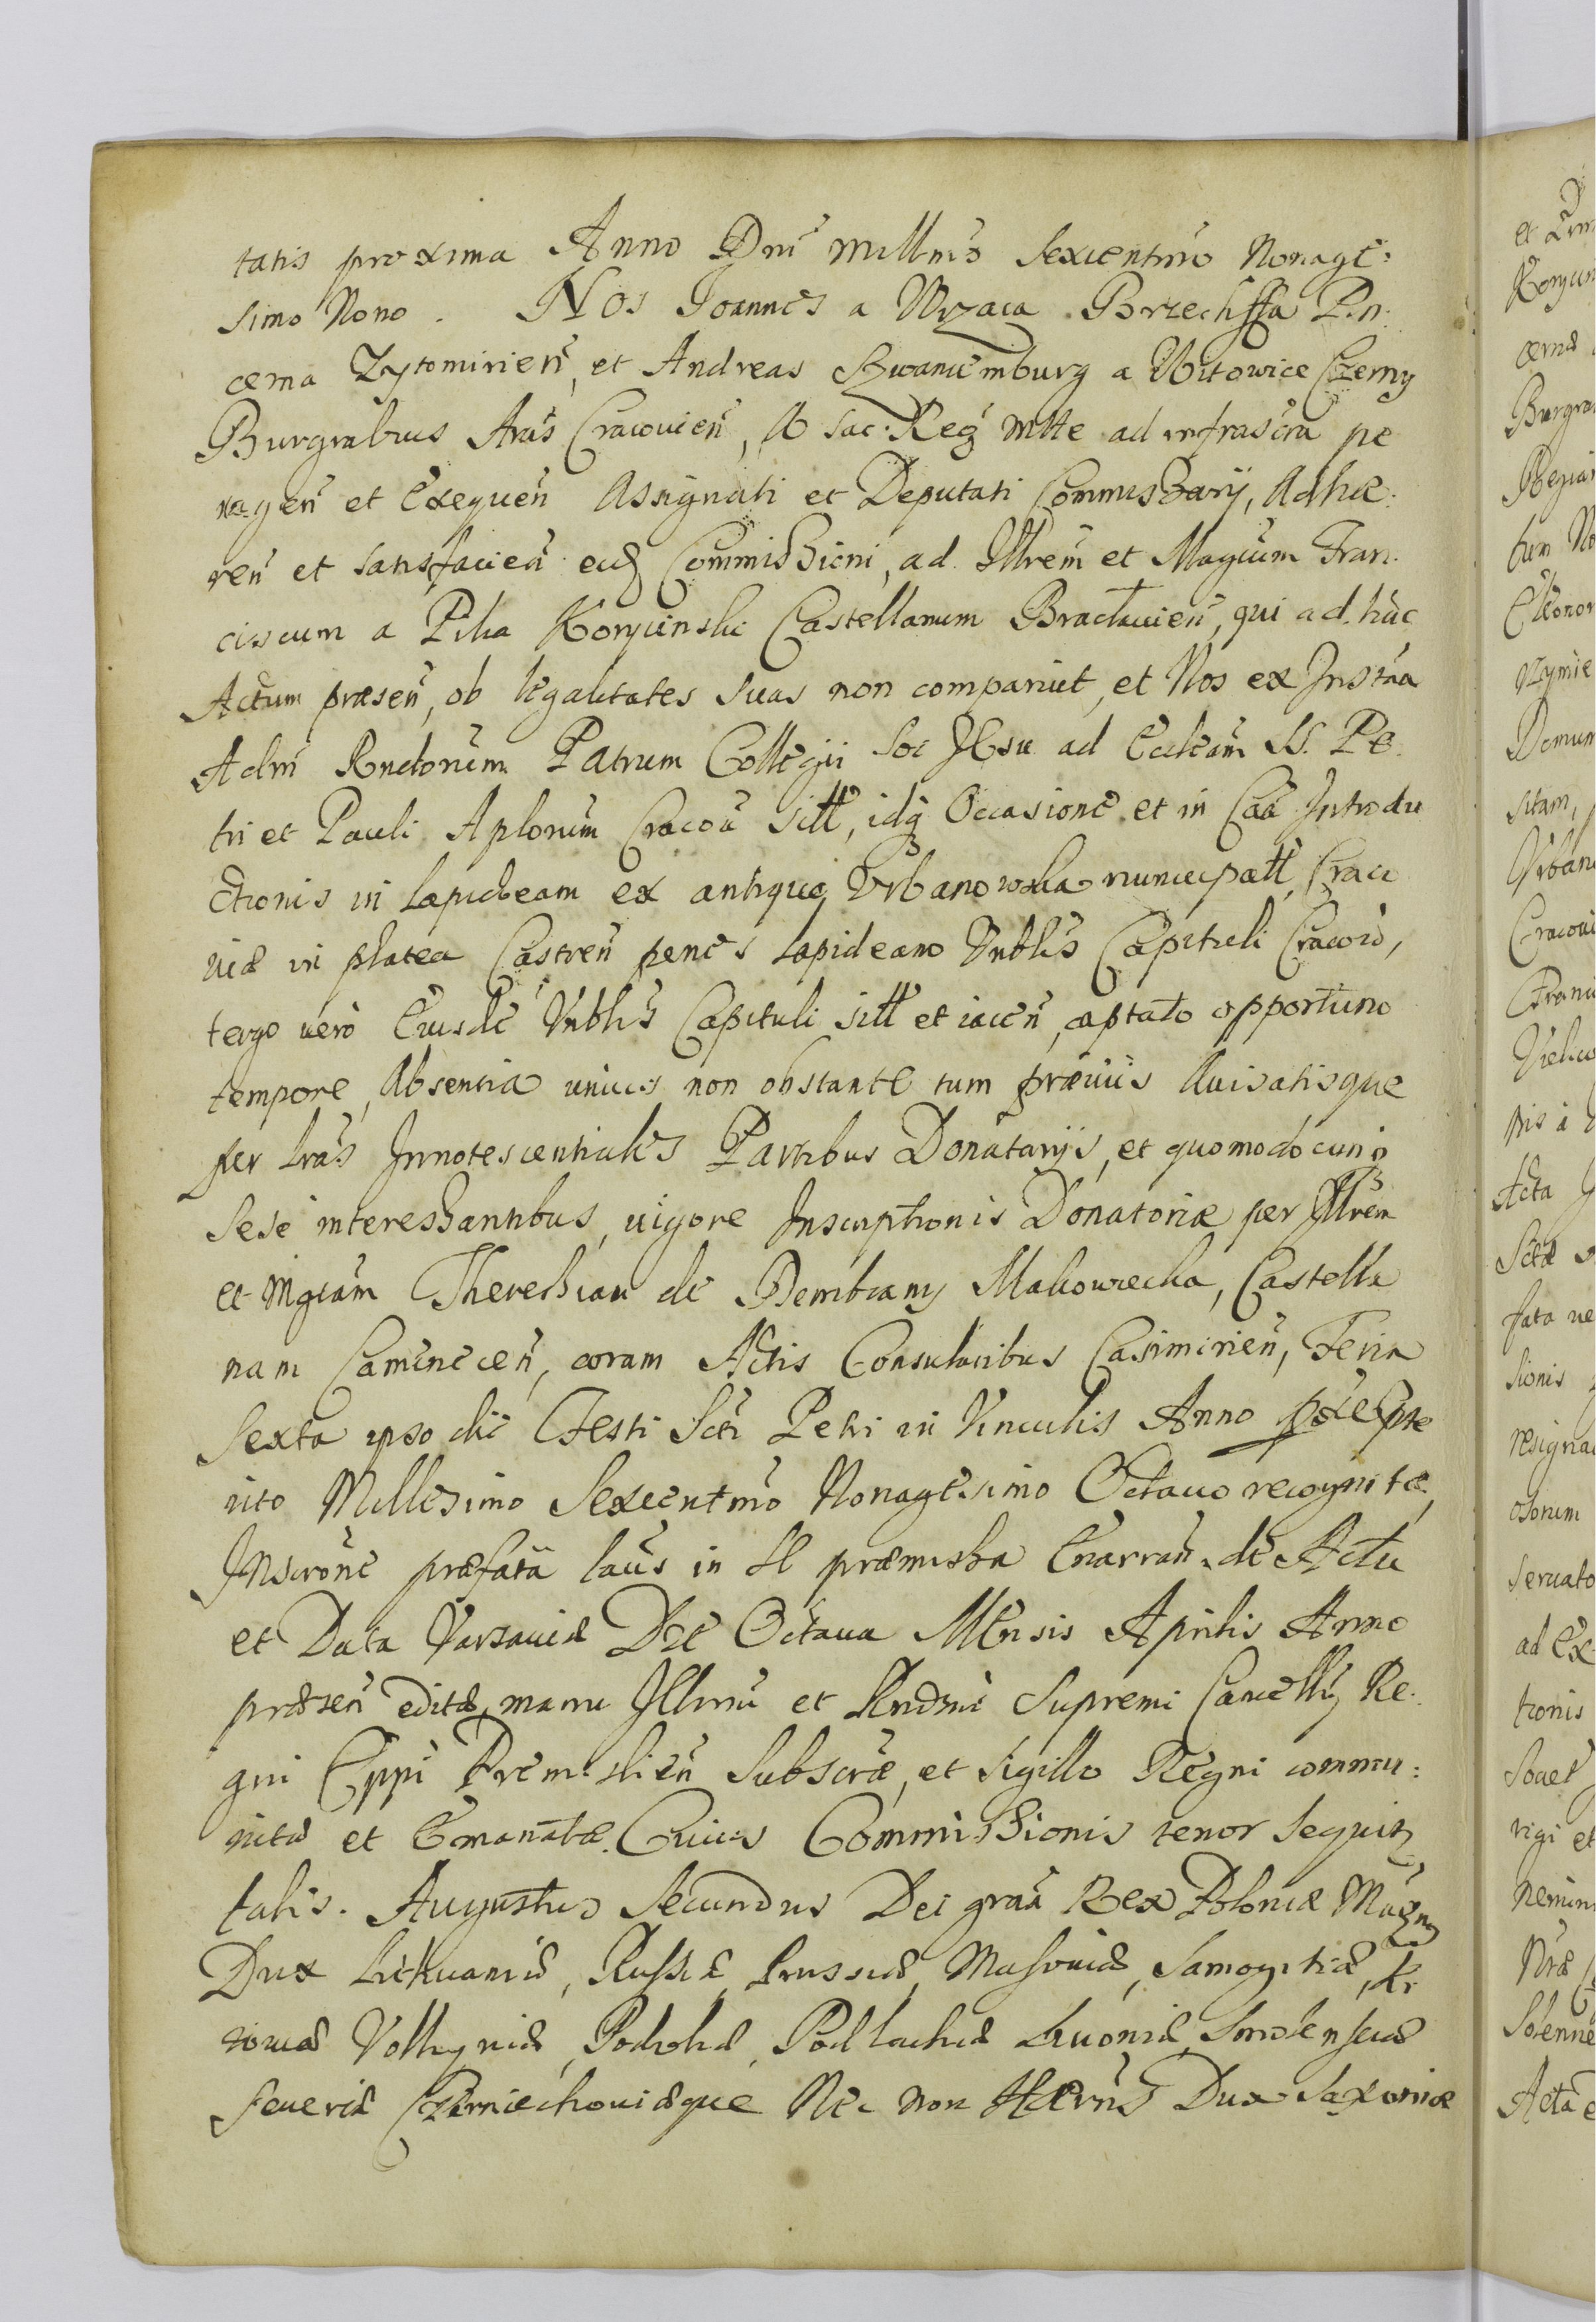 tatis proxima Anno Dni millmo Sexcentmo Nonage:
simo Nono. Nos Joannes a Wrzaca Brzechffa Pin:
cerna Zytomirien, et Andreas Szwancemburg a Witowice Czerny
Burgrabius Arcis Cracovien, A Sac: Reg mtte ad infrascra pe
ragen et Exequen Assignati et Deputati Commissarij, Adhæ:
ren et satisfacien eid Commissioni, ad Illrem et Magcum Fran:
ciscum a Pilca Korycinski Castellanum Braclavien, qui ad hûc
Actum præsen, ob legalitates suas non comparuit, et Nos ex Instãa
Adm Rndorum Patrum Collegii Soc Jesu ad Eccleam SS. Pe:
tri et Pauli Aplorum Cracoã sitt, idq Occasione et in Caã Introdu
ctionis in Lapideam ex antiquo Urbanowska nuncupatt, Craco
viæ in platea Castren penes Lapideam Vnblis Capituli Cracoω,
tergo verò Eiusdẽ Vnblis Capituli sitt et iacen, captato opportuno
tempore, Absentia unius non obstante tum prævijs Avisatisque
per Lras Innotescentiales Partibus Donatarijs, et quomodocunq
Sese interessantibus, vigore Inscriptionis Donatoriæ per Illrem
et Mgcam Theressiam de Dembiany Makowiecka, Castella
nam Camenecen, coram Actis Consularibus Casimirien, Feria
Sexta ipso die Festi Scti Petri in Vinculis Anno præte
rito Millesimo Sexcentmo Nonagesimo Octavo recognitæ,
Inscrone præfata latius in se præmissa Enarran. de Actu
et Data Varsaviæ Die Octava Mensis Aprilis Anno
præsen editæ, manu Illmi et Rndmi Supremi Cancellrij Re:
gni Eppi Premislien Subscræ, et Sigillo Regni commu:
nitæ et Emanatæ. Cuius Commissionis tenor Sequitz
talis. Augustus Secundus Dei graã Rex Poloniæ Magng
Dux Lithuaniæ, Russiæ, Prussiæ, Masoviæ, Samogitiæ, Ki
ioviæ Volhyniæ, Podoliæ, Podlachiæ Livoniæ, Smolensciæ
Severiæ Czerniechoviæque Nec non Hærus Dux Saxoniæ